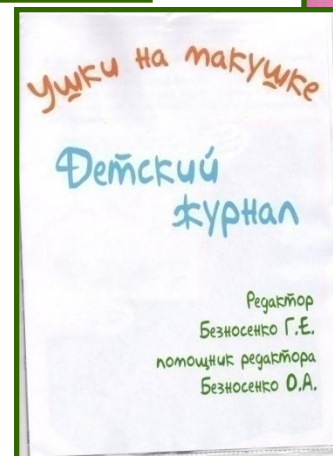 Ушки на макушке
Детский
журнал
Редактор
Безносенко Г.Е.
помощник редактора
Безносенко О.А.